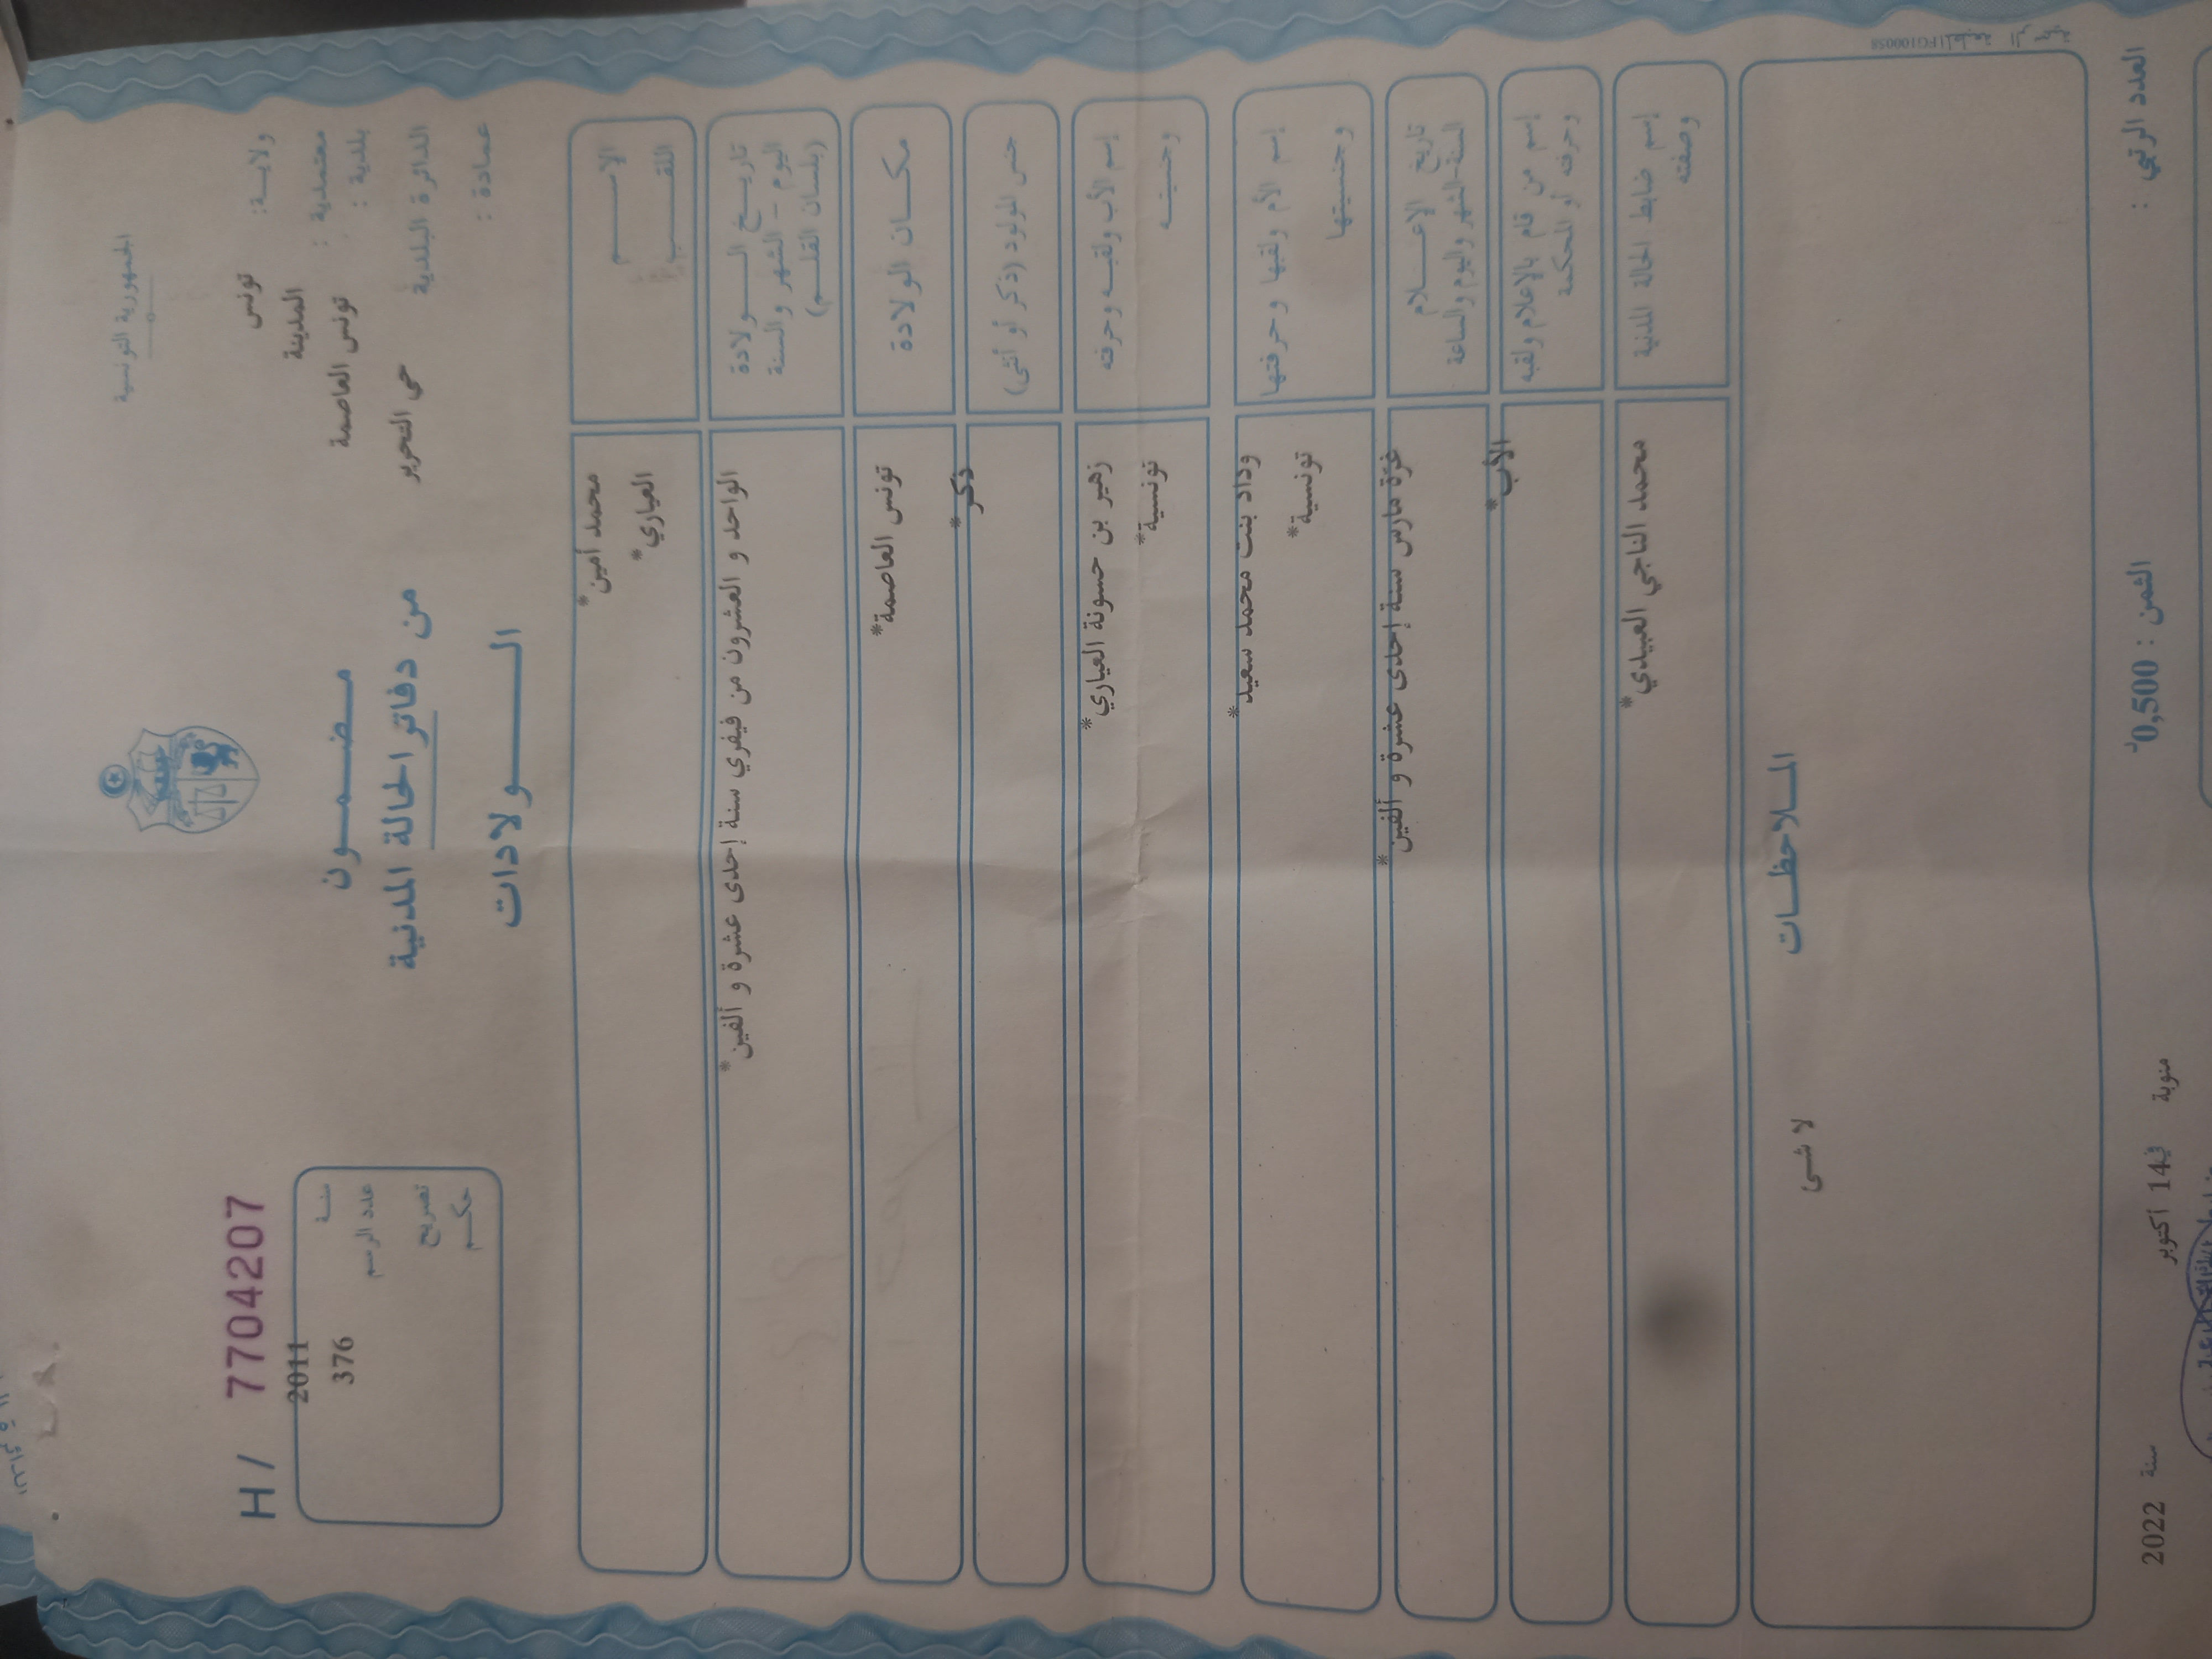 الجمهورية التونسية
ولايـــة: تونس
معتمدية : المدينة
بلدية : تونس العاصمة
الدائرة البلدية حي التحرير
عمادة :
مـــضـــمــــون
من دفاتر الحالة المدنية
الــــــــولادات
H / 7704207
سنــة 2011
عدد الرســم 376
تصريح
حكــم
الإســــــم محمد أمين*
اللقــــــب العياري*
تاريـــخ الـــــولادة الواحد و العشرون من فيفري سنة إحدى عشرة و ألفين*
اليوم – الشهر و السنة
(بلسان القلـــم)
مكـــان الولادة تونس العاصمة*
جنس المولود (ذكر أو أنثى) ذكر*
إسم الأب ولقبـــه وحرفته زهير بن حسونة العياري*
وجنسيتـــه تونسية*
إسم الأم ولقبها وحرفتها وداد بنت محمد سعيد*
وجنسيتها تونسية*
تاريخ الإعــــلام غرّة مارس سنة إحدى عشرة و ألفين*
السنة-الشهر واليوم والساعة
إسم من قام بالإعلام ولقبه الأب*
وحرفته أو المحكمة
إسم ضابط الحالة المدنية محمد الناجي العبيدي*
وصفته
المـــلاحظـــات
لا شى
FG100058
العدد الرتبي :
الثمن : 0,500د
منوبة في 14 أكتوبر سنة 2022